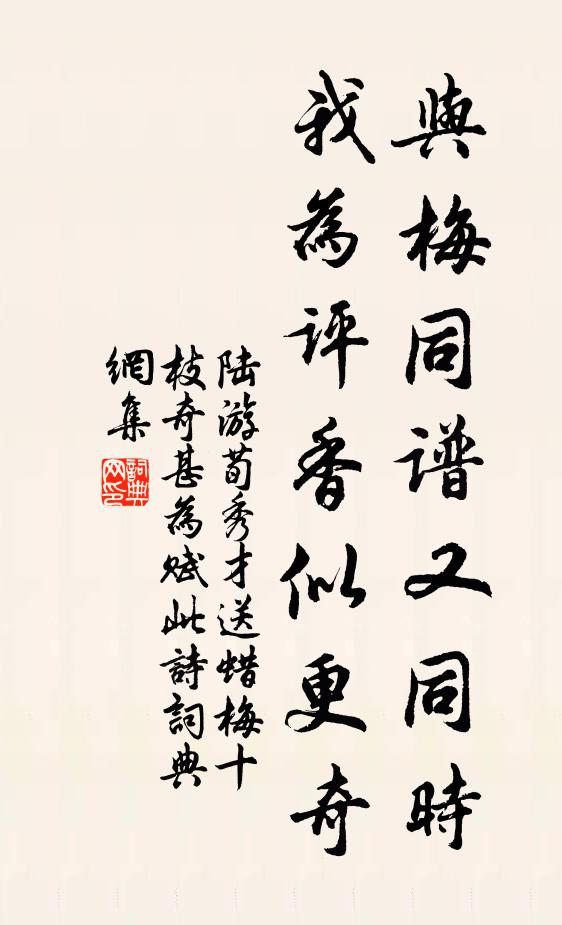 與梅同譜又同時
我為評香似更奇
陆游荀秀才送蜡梅十
枝奇甚為赋此詩詞典
網集
詞典
网印